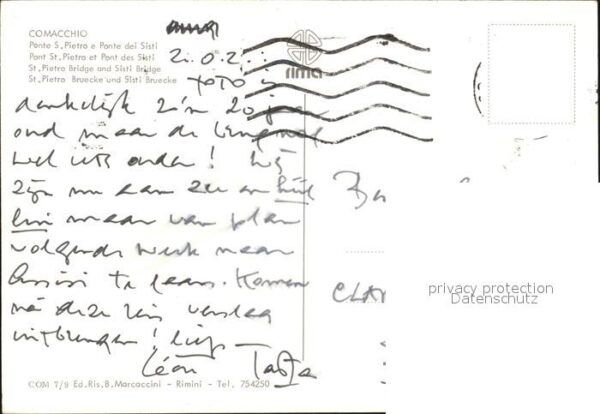 COMACCHIO
Ponte S. Pietro e Ponte dei Sisti
Pont St. Pietro et Pont des Sisti
St. Pietro Bridge and Sisti Bridge
St. Pietro Bruecke und Sisti Bruecke
rima
foto is
dankelijk z'n 20 jr
oud maar de brug
wel iets ouder! Wij
zijn nu aan zee en
maar van plan
volgende week naar
Assisi te gaan. Komen
na deze reis verslag
uitbrengen! liefs
Léon
CLA
privacy protection
Datenschutz
COM 7/9 Ed. Ris. B. Marcaccini - Rimini - Tel. 754250